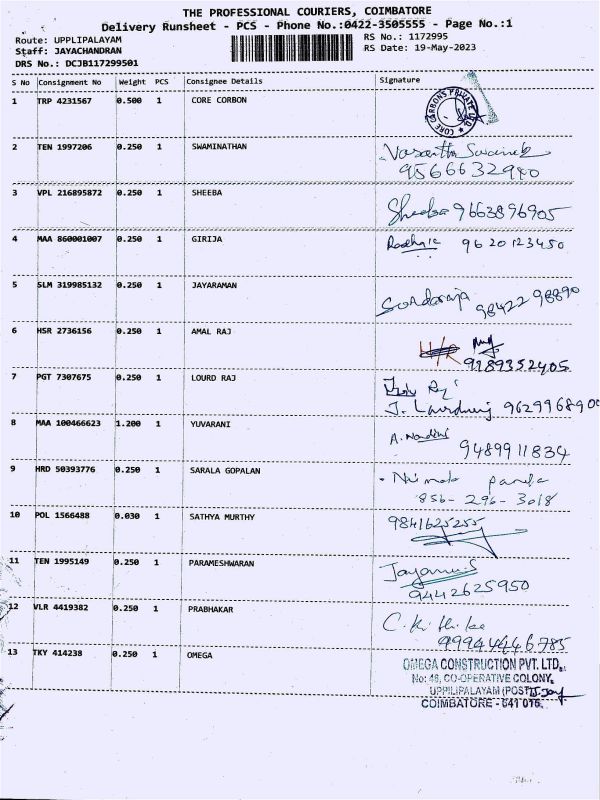 THE PROFESSIONAL COURIERS, COIMBATORE
Delivery Runsheet - PCS - Phone No.:0422-3505555 - Page No.:1
Route: UPPLIPALAYAM
RS No.: 1172995
Staff: JAYACHANDRAN
RS Date: 19-May-2023
DRS No.: DCJB117299501
S No Consignment No Weight PCS Consignee Details Signature
1 TRP 4231567 0.500 1 CORE CORBON
CORE CARBONS PRIVATE LTD.
2 TEN 1997206 0.250 1 SWAMINATHAN Vasantha
9566632940
3 VPL 216895872 0.250 1 SHEEBA Sheeba 9663896905
4 MAA 860001007 0.250 1 GIRIJA 9620123450
5 SLM 319985132 0.250 1 JAYARAMAN
98422 98890
6 HSR 2736156 0.250 1 AMAL RAJ
9189352405
7 PGT 7307675 0.250 1 LOURD RAJ
J. 9629968900
8 MAA 100466623 1.200 1 YUVARANI A. Nandini
9489911834
9 HRD 50393776 0.250 1 SARALA GOPALAN
856-296-3018
10 POL 1566488 0.030 1 SATHYA MURTHY 9841625255
11 TEN 1995149 0.250 1 PARAMESHWARAN
9442625950
12 VLR 4419382 0.250 1 PRABHAKAR
13 TKY 414238 0.250 1 OMEGA
OMEGA CONSTRUCTION PVT. LTD.,
No: 46, CO-OPERATIVE COLONY,
UPPILIPALAYAM (POST)
COIMBATORE - 641 015.